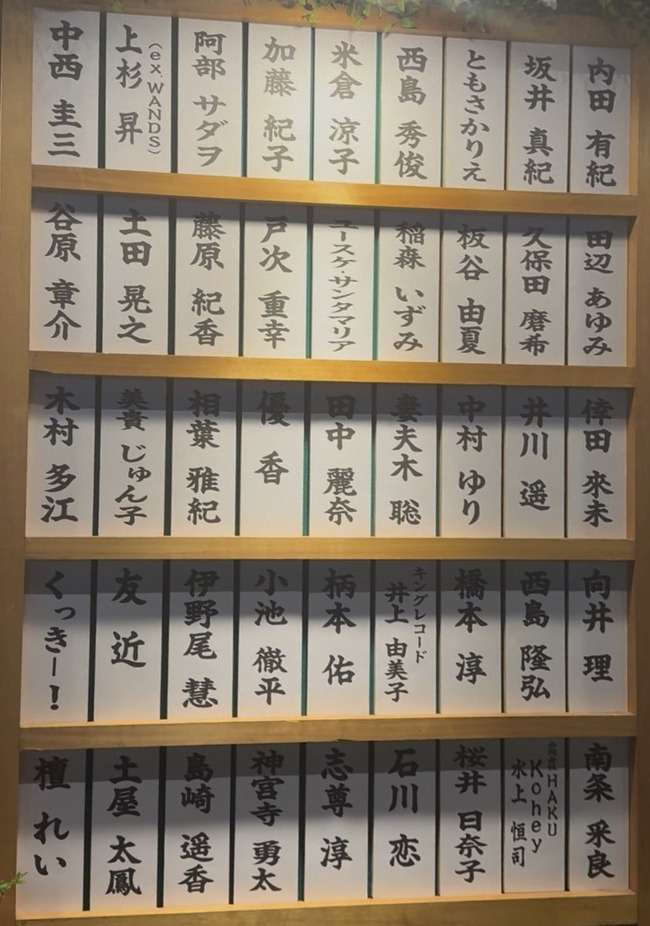 内田 有紀
坂井 真紀
ともさかりえ
西島 秀俊
米倉 涼子
加藤 紀子
阿部 サダヲ
(ex.WANDS)
上杉 昇
中西 圭三
田辺 あゆみ
久保田 磨希
板谷 由夏
稲森 いずみ
ユースケ・サンタマリア
戸次 重幸
藤原 紀香
土田 晃之
谷原 章介
倖田 來未
井川 遥
中村 ゆり
妻夫木 聡
田中 麗奈
優 香
相葉 雅紀
美貴 じゅん子
木村 多江
向井 理
西島 隆弘
橋本 淳
キングレコード
井上 由美子
柄本 佑
小池 徹平
伊野尾 慧
友 近
くっきー!
南条 采良
HAKU
Kohey
水上 恒司
桜井 日奈子
石川 恋
志尊 淳
神宮寺 勇太
島崎 遥香
土屋 太鳳
檀 れい